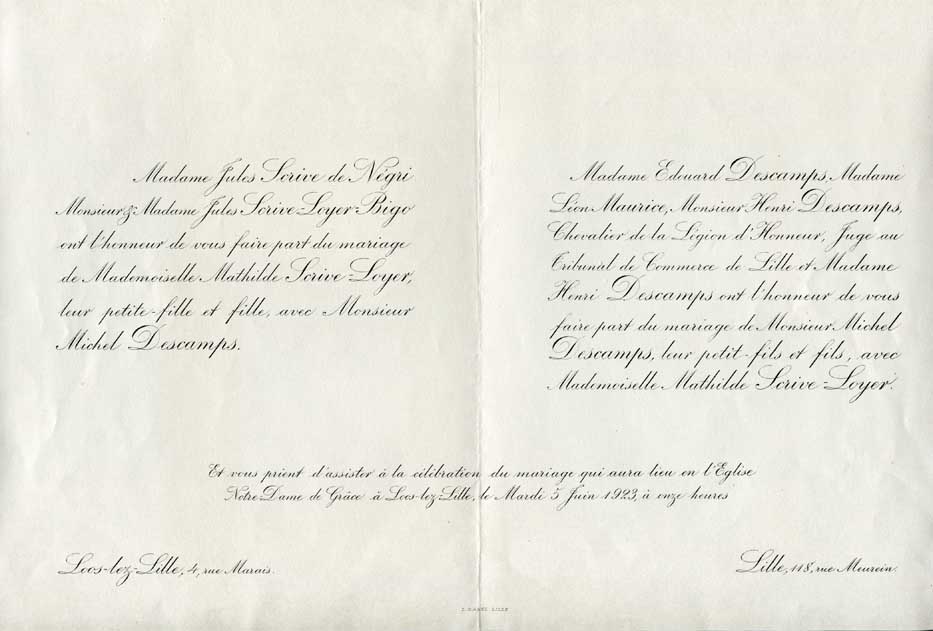 Madame Jules Scrive de Négri
Monsieur & Madame Jules Scrive-Loyer-Bigo
ont l'honneur de vous faire part du mariage
de Mademoiselle Mathilde Scrive-Loyer,
leur petite-fille et fille, avec Monsieur
Michel Descamps.
Madame Edouard Descamps, Madame
Léon Maurice, Monsieur Henri Descamps,
Chevalier de la Légion d'Honneur, Juge au
Tribunal de Commerce de Lille et Madame
Henri Descamps ont l'honneur de vous
faire part du mariage de Monsieur Michel
Descamps, leur petit-fils et fils, avec
Mademoiselle Mathilde Scrive-Loyer.
Et vous prient d'assister à la célébration du mariage qui aura lieu en l'Eglise
Notre-Dame de Grâce à Loos-lez-Lille, le Mardi 5 Juin 1923, à onze heures
Loos-lez-Lille, 4, rue Marais.
Lille, 118, rue Meurein.
LILLE